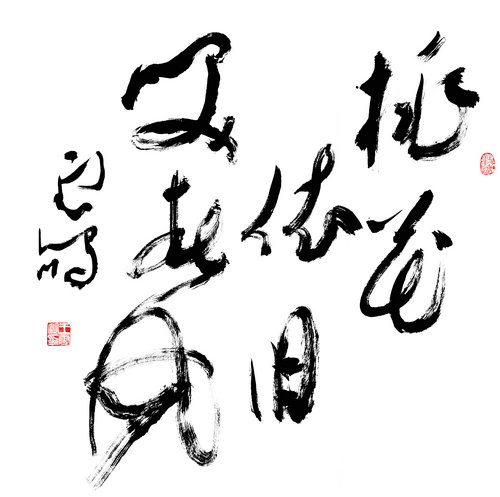 桃花
依旧
笑春风